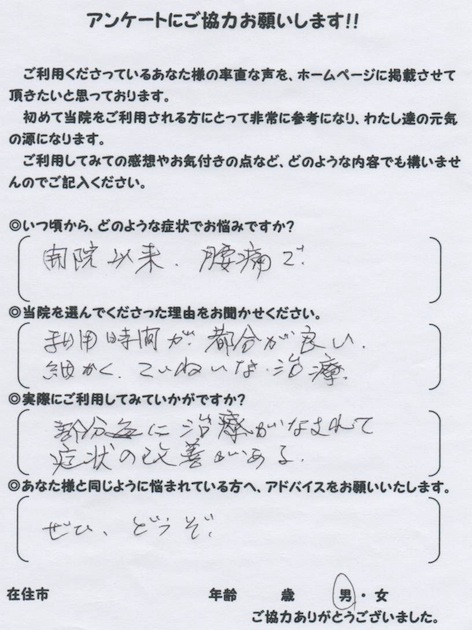 アンケートにご協力お願いします!!
ご利用くださっているあなた様の率直な声を、ホームページに掲載させて
頂きたいと思っております。
初めて当院をご利用される方にとって非常に参考になり、わたし達の元気
の源になります。
ご利用してみての感想やお気付きの点など、どのような内容でも構いませ
んのでご記入ください。
◎いつ頃から、どのような症状でお悩みですか?
開院以来、腰痛で
◎当院を選んでくださった理由をお聞かせください。
利用時間が、都合が良い、
細かく、ていねいな治療
◎実際にご利用してみていかがですか?
に治療がなされて
症状の改善がある
◎あなた様と同じように悩まれている方へ、アドバイスをお願いいたします。
ぜひ、どうぞ。
在住市 年齢 歳 男・女
ご協力ありがとうございました。